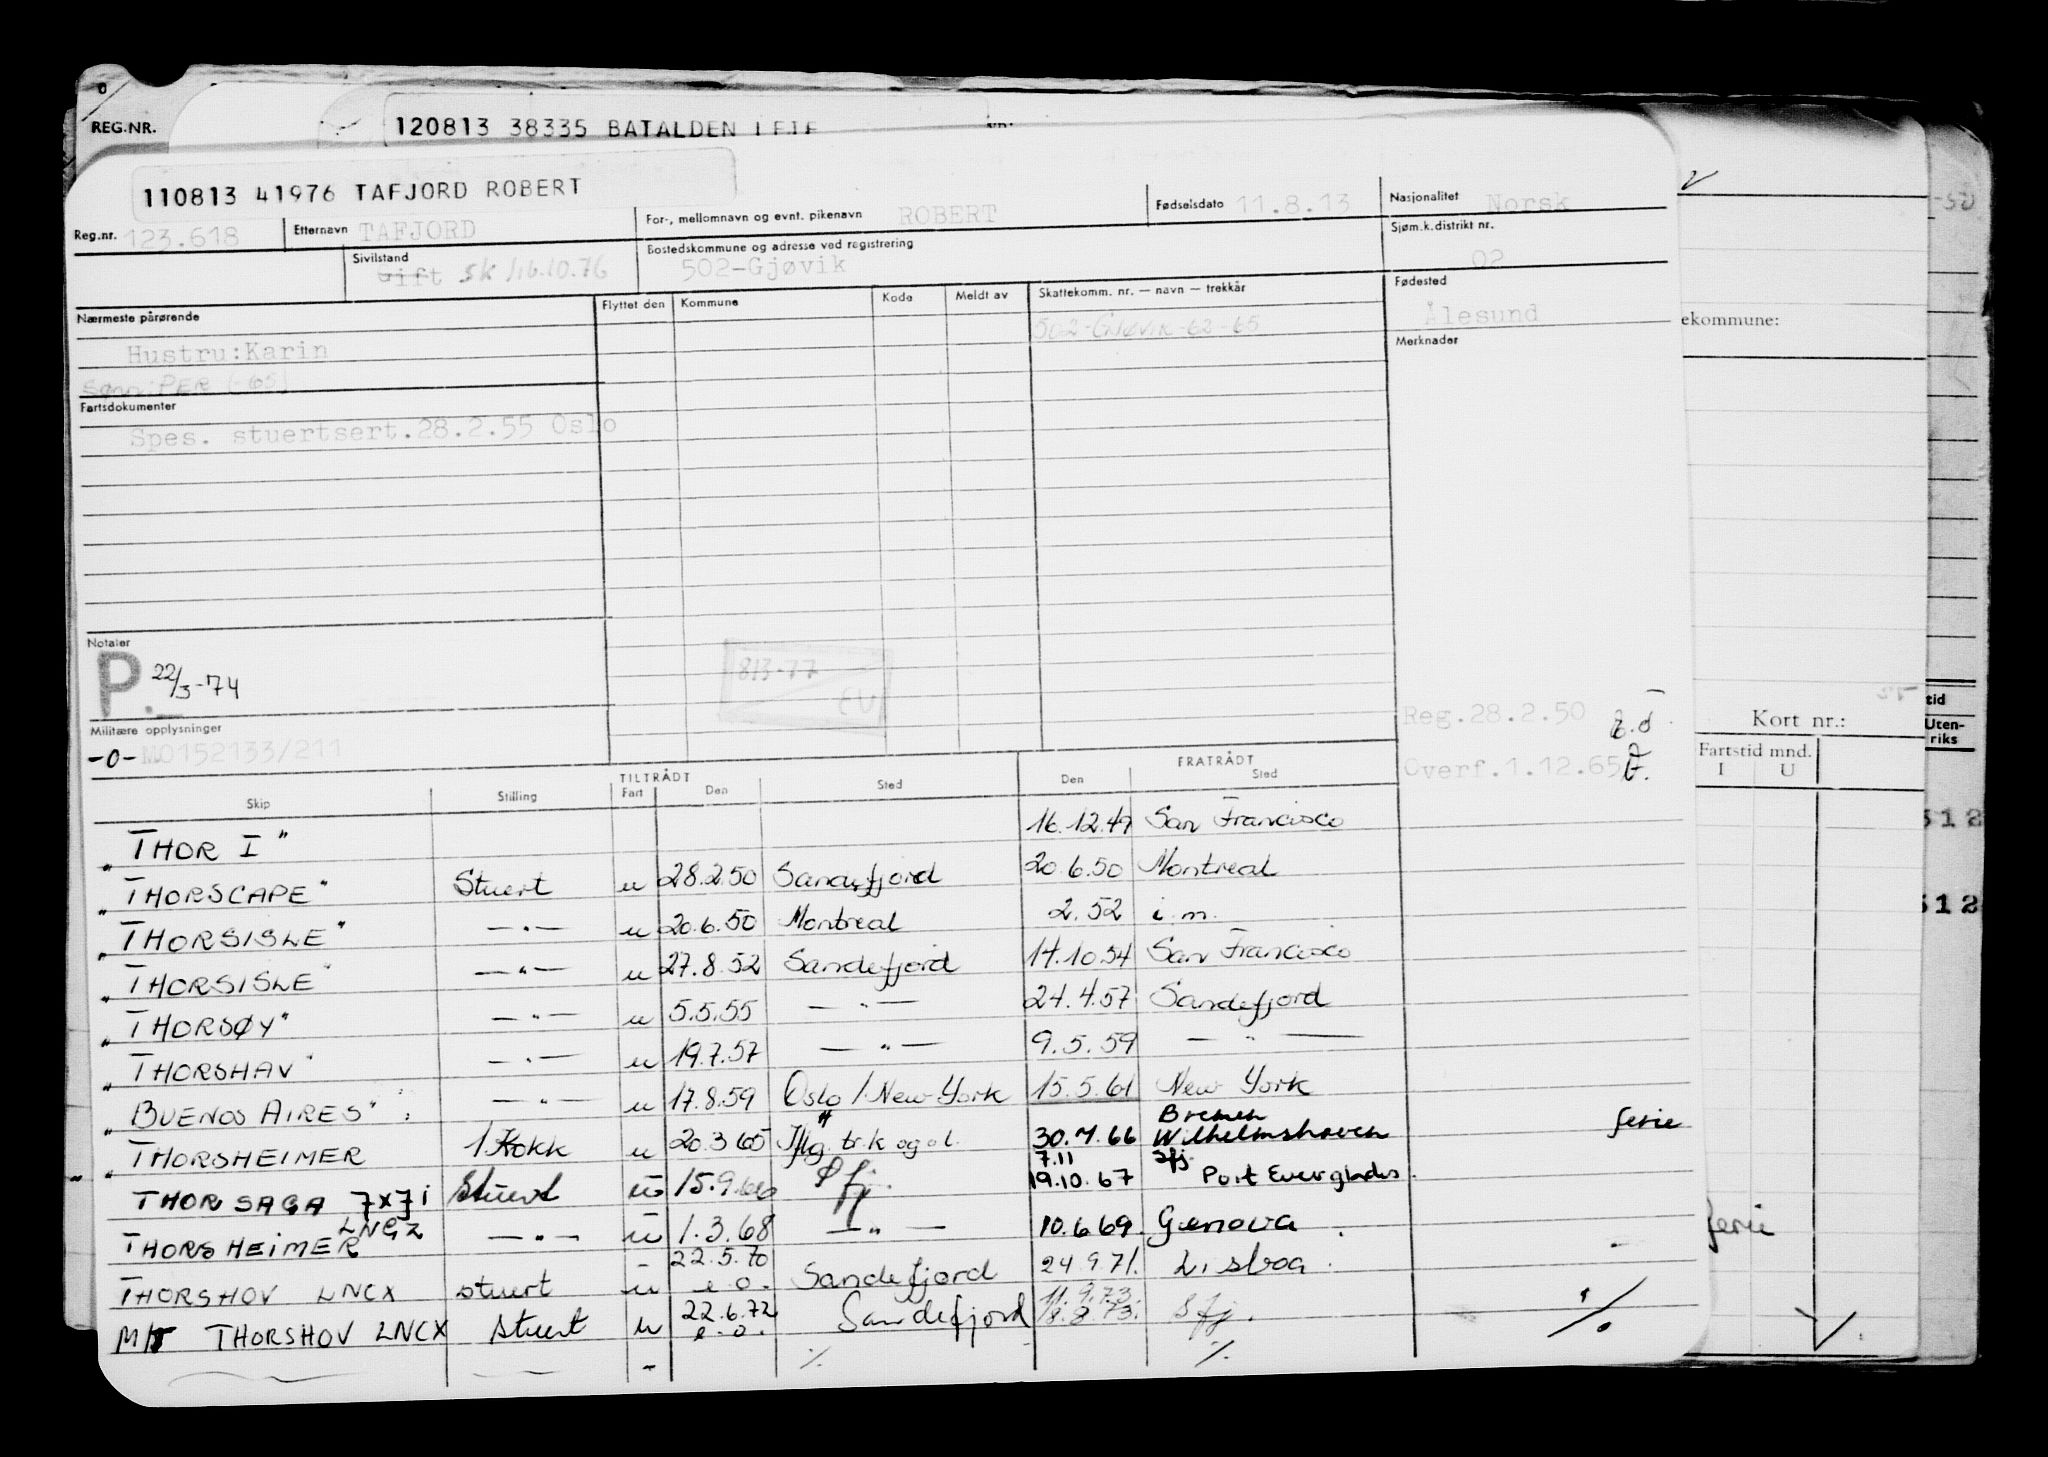 REG.NR.
120813 38335 BATALDEN LEIF
110813 41976 TAFJORD ROBERT
Reg.nr. 123.618 Etternavn TAFJORD For-, mellomnavn og evnt. pikenavn ROBERT Fødselsdato 11.8.13 Nasjonalitet Norsk
Sivilstand Gift SK 16.10.76 Bostedskommune og adresse ved registrering 502-Gjøvik Sjøm.k.distrikt nr. 02
Nærmeste pårørende Flyttet den Kommune Kode Meldt av Skattekomm. nr. — navn — trekkår Fødested
Hustru:Karin 502-GJØVIK-62-65 Ålesund
Sønn:PER (-65) Merknader
Fartsdokumenter
Spes. stuertsert.28.2.55 Oslo
Notater
P. 22/3-74
813-77
EU
Militære opplysninger
-0- MO152133/211
Reg.28.2.50
Overf.1.12.65
TILTRÅDT FRATRÅDT
Skip Stilling Fart Den Sted Den Sted
„THOR I" 16.12.49 San Francisco
„THORSCAPE" Stuert u 28.2.50 Sandefjord 20.6.50 Montreal
„THORSISLE" —"— u 20.6.50 Montreal 2.52 i.m.
„THORSISLE" —"— u 27.8.52 Sandefjord 14.10.54 San Francisco
„THORSØY" —"— u 5.5.55 —"— 24.4.57 Sandefjord
„THORSHAV" —"— u 19.7.57 —"— 9.5.59 —"—
„BUENOS AIRES" —"— u 17.8.59 Oslo/New York 15.5.61 New York
„THORSHEIMER 1 Kokk u 20.3 65 30.7.66 Bremen Wilhelmshaven ferie
THORSAGA 7x7i Stuert u 15.9.66 Sfj. 7.11 Sfj. 19.10.67 Port Everglades.
THORSHEIMER LNGZ —"— u 1.3.68 —"— 10.6 69. Genova.
THORSHOV LNCX stuert u 22.5.70 e.o. Sandefjord 24 9 71. Lisboa.
M/T THORSHOV LNCX stuert u 22.6.72 e.o. Sandefjord 11.9.73. 18.8.73. Sfj.
ekommune:
Kort nr.:
Fartstid mnd.
I U
tid
Uten-
riks
512
512
ferie